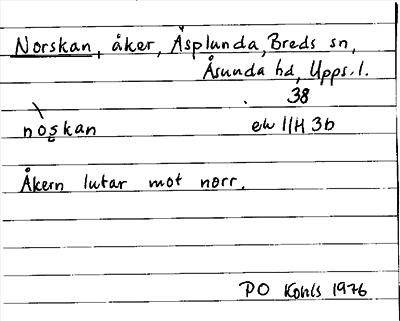 Norskan, åker, Åsplunda, Breds sn,
Åsunda hd, Upps. l.
38
noskan ek 11H 3b
Åkern lutar mot norr.
PO 1976